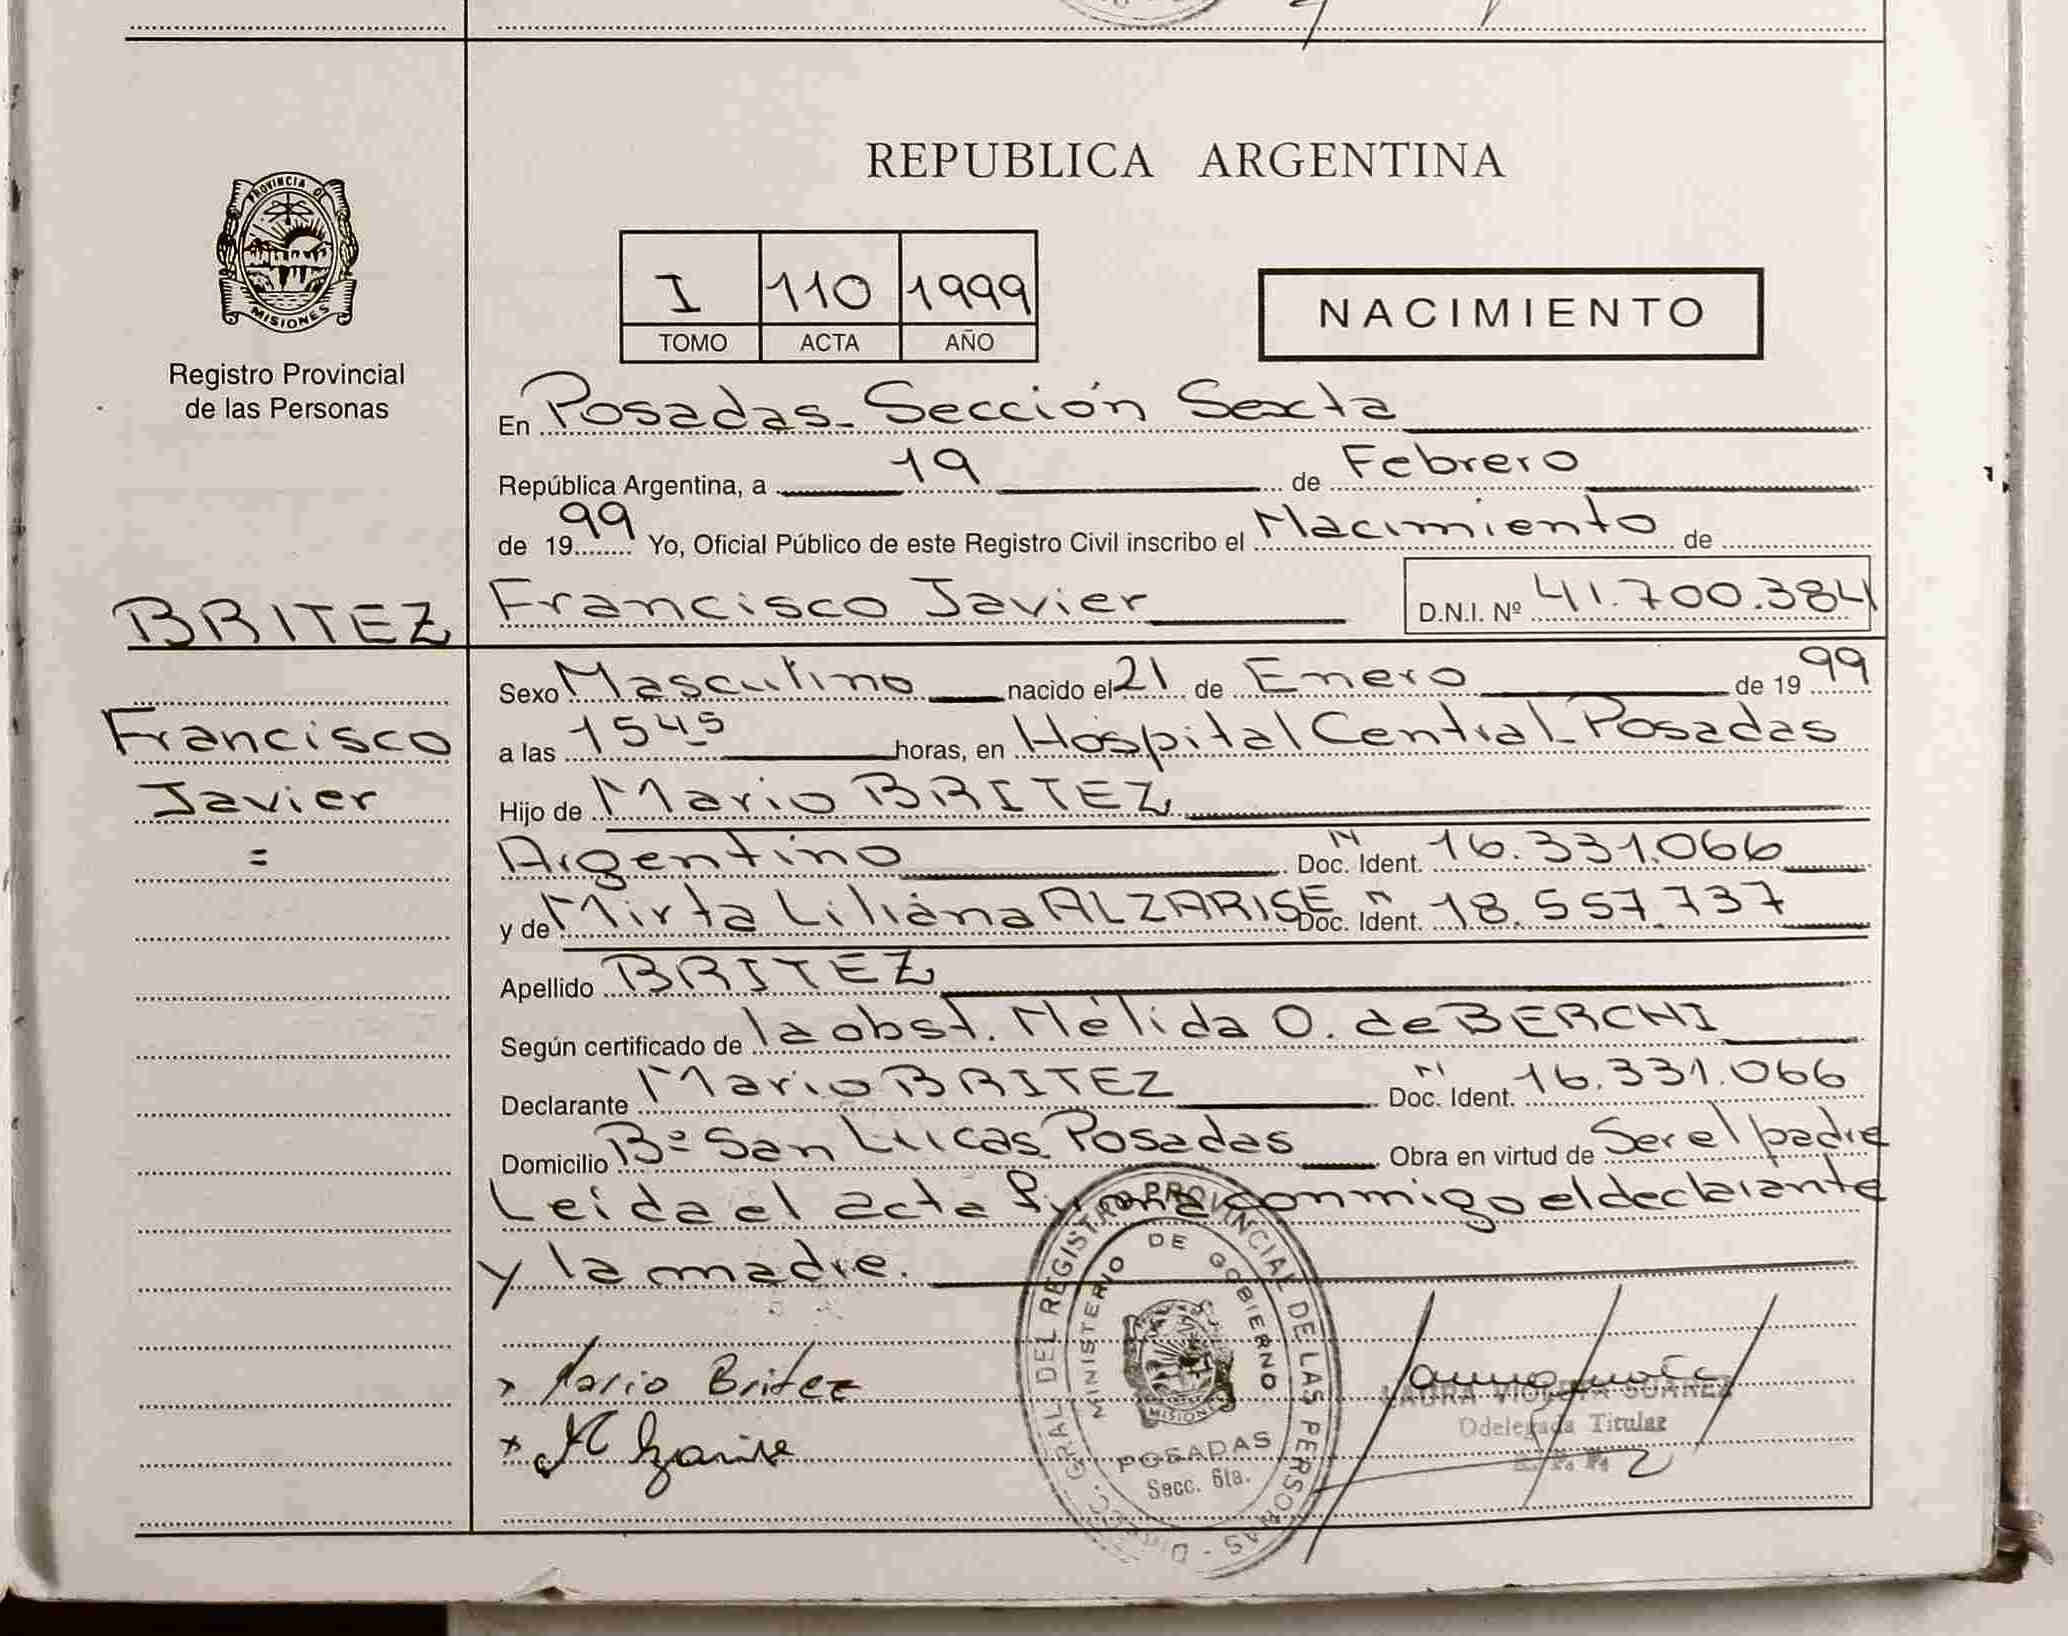 PROVINCIA DE
MISIONES
Registro Provincial
de las Personas
BRITEZ
Francisco
Javier
=
REPUBLICA ARGENTINA
I 110 1999
TOMO ACTA AÑO
NACIMIENTO
En Posadas - Sección Sexta
República Argentina, a 19 de Febrero
de 1999 Yo, Oficial Público de este Registro Civil inscribo el Nacimiento de
Francisco Javier D.N.I. Nº 41.700.384
Sexo Masculino nacido el 21 de Enero de 1999
a las 1545 horas, en Hospital Central - Posadas
Hijo de Mario BRITEZ
Argentino Doc. Ident. N 16.331.066
y de Mirta Liliana ALZARISE Doc. Ident. N 18.557.737
Apellido BRITEZ
Según certificado de la obst. Nélida O. de BERCHI
Declarante Mario BRITEZ Doc. Ident. N 16.331.066
Domicilio Bº San Lucas Posadas Obra en virtud de Ser el padre
Leída el acta firma conmigo el declarante
y la madre.
x Mario Britez
x Alzarise
DIRECC. GRAL DEL REGISTRO PROVINCIAL DE LAS PERSONAS
MINISTERIO DE GOBIERNO
MISIONES
POSADAS
Secc. 6ta.
LAURA VIOLETA SUAREZ
Odelegada Titular